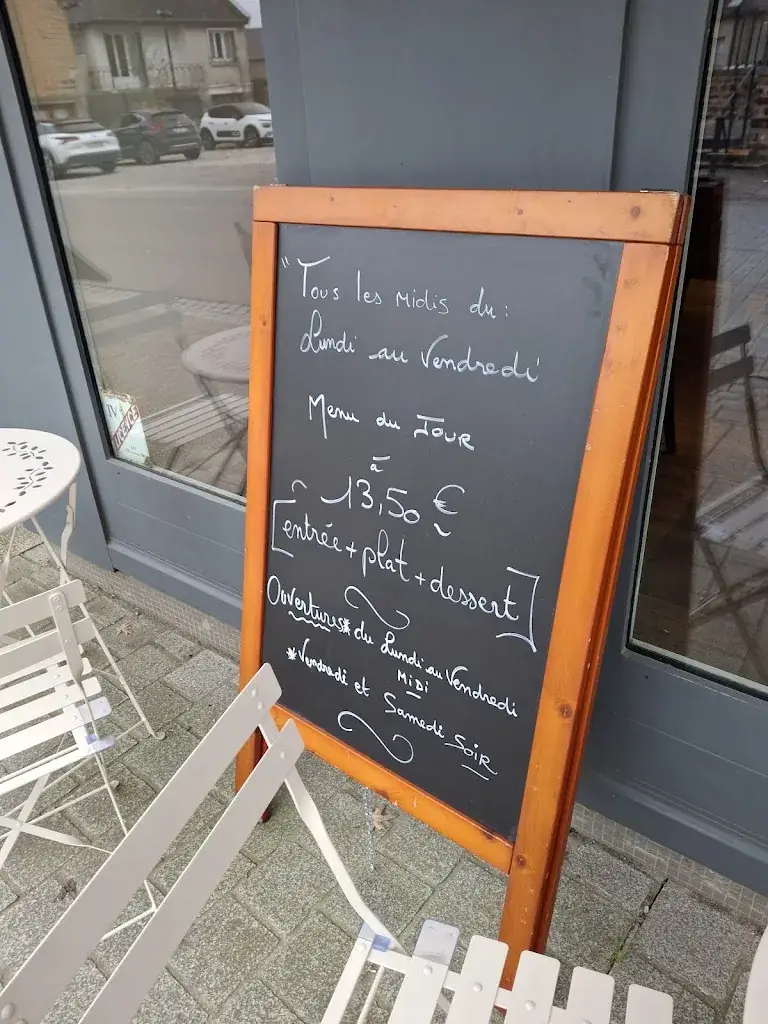 "Tous les midis du:
Lundi au Vendredi
Menu du JOUR
à
13,50 €
[entrée + plat + dessert]
Ouvertures* du Lundi au Vendredi
MiDi
*Vendredi et Samedi SOiR
IV
LICENCE